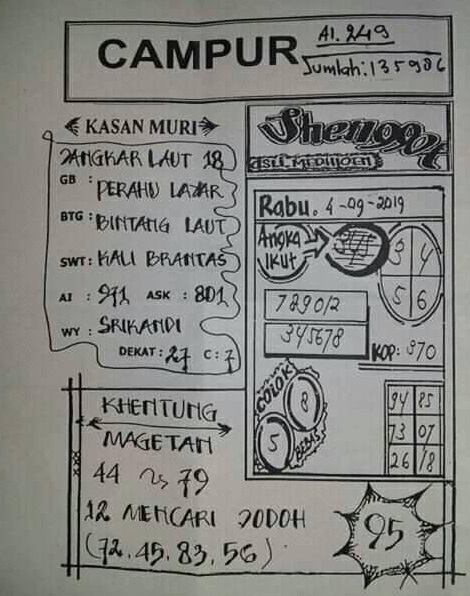 CAMPUR
AI. 249
Jumlah: 135986
KASAN MURI
JANGKAR LAUT 18
GB : PERAHU LAYAR
BTG : BINTANG LAUT
SWT : KALI BRANTAS
AI : 971 ASK : 801
WY : SRIKANDI
DEKAT : 27 C : 7
ASLI MEDIUOEN
Rabu. 4-09-2019
ANGKA
IKUT
3 4
5 6
789012
345678
KOP: 970
COLOK
8
5
BEBAS
94 85
73 07
26 18
KHENTUNG
MAGETAN
44 79
12 MENCARI JODOH
(72.45.83.56)
95